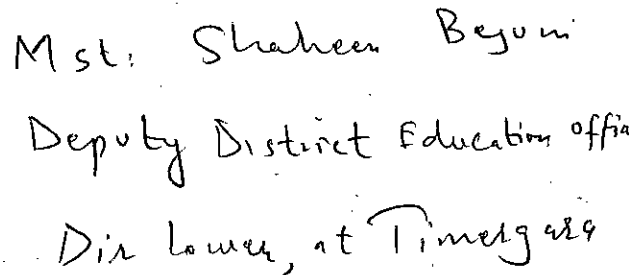 Mst: Shaheen Begum
Deputy District Education offic
Dir Lower, at Timergara